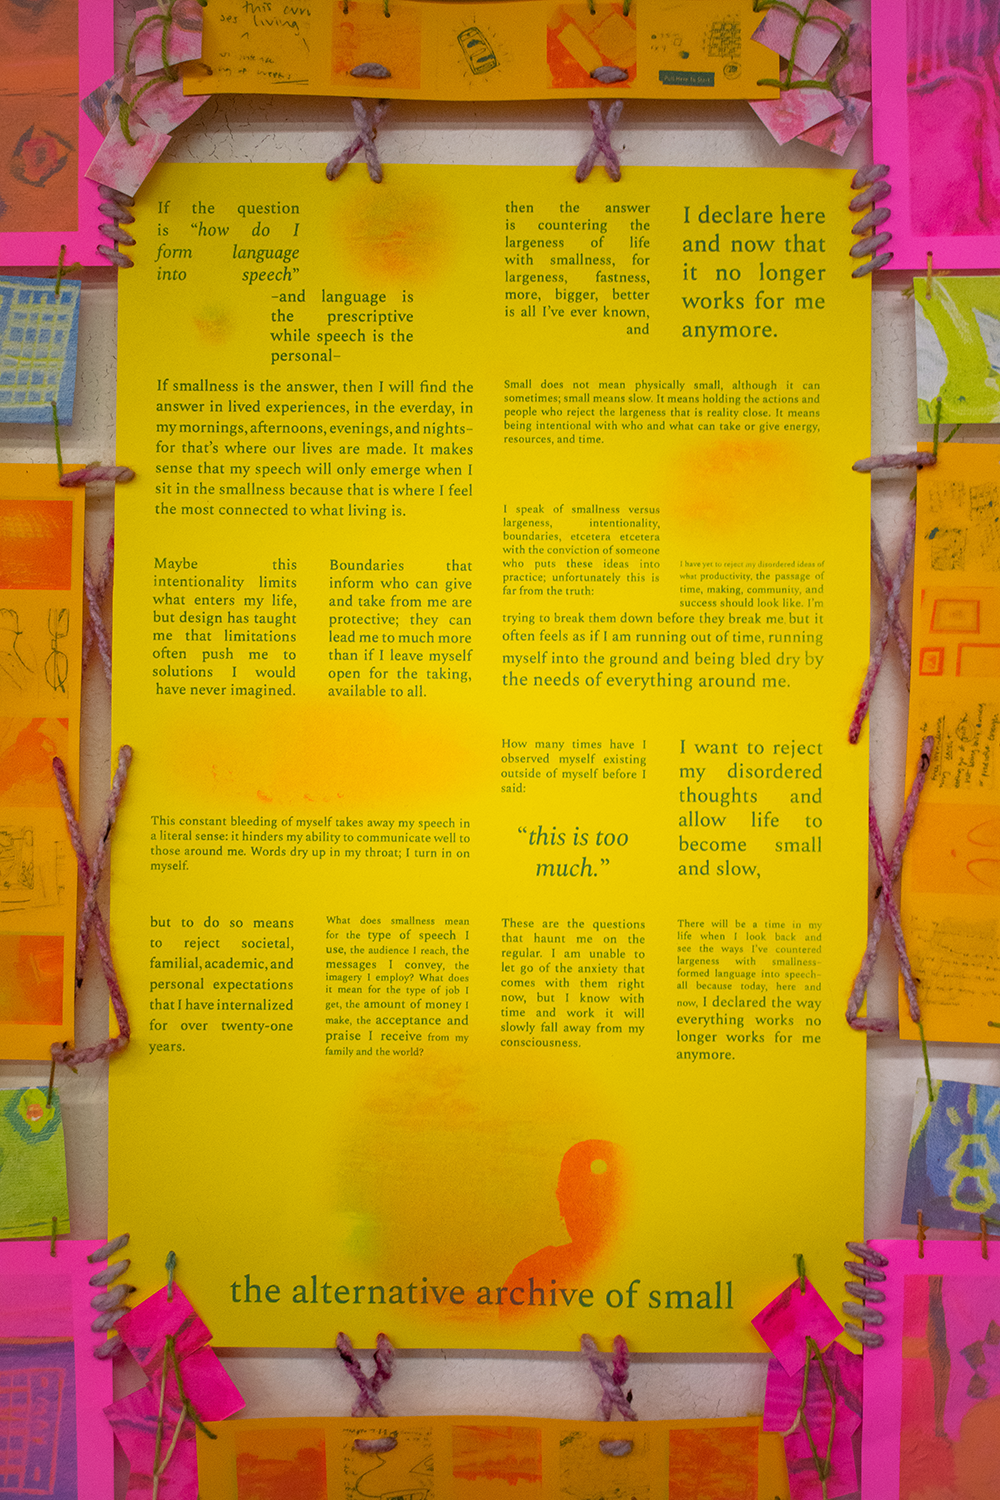 this own
ses living
Pull Here to Start
If the question
is “how do I
form language
into speech”
–and language is
the prescriptive
while speech is the
personal–
then the answer
is countering the
largeness of life
with smallness, for
largeness, fastness,
more, bigger, better
is all I’ve ever known,
and
I declare here
and now that
it no longer
works for me
anymore.
If smallness is the answer, then I will find the
answer in lived experiences, in the everday, in
my mornings, afternoons, evenings, and nights–
for that’s where our lives are made. It makes
sense that my speech will only emerge when I
sit in the smallness because that is where I feel
the most connected to what living is.
Small does not mean physically small, although it can
sometimes; small means slow. It means holding the actions and
people who reject the largeness that is reality close. It means
being intentional with who and what can take or give energy,
resources, and time.
Maybe this
intentionality limits
what enters my life,
but design has taught
me that limitations
often push me to
solutions I would
have never imagined.
Boundaries that
inform who can give
and take from me are
protective; they can
lead me to much more
than if I leave myself
open for the taking,
available to all.
I speak of smallness versus
largeness, intentionality,
boundaries, etcetera etcetera
with the conviction of someone
who puts these ideas into
practice; unfortunately this is
far from the truth:
I have yet to reject my disordered ideas of
what productivity, the passage of
time, making, community, and
success should look like. I’m
trying to break them down before they break me, but it
often feels as if I am running out of time, running
myself into the ground and being bled dry by
the needs of everything around me.
This constant bleeding of myself takes away my speech in
a literal sense: it hinders my ability to communicate well to
those around me. Words dry up in my throat; I turn in on
myself.
How many times have I
observed myself existing
outside of myself before I
said:
“this is too
much.”
I want to reject
my disordered
thoughts and
allow life to
become small
and slow,
but to do so means
to reject societal,
familial, academic, and
personal expectations
that I have internalized
for over twenty-one
years.
What does smallness mean
for the type of speech I
use, the audience I reach, the
messages I convey, the
imagery I employ? What does
it mean for the type of job I
get, the amount of money I
make, the acceptance and
praise I receive from my
family and the world?
These are the questions
that haunt me on the
regular. I am unable to
let go of the anxiety that
comes with them right
now, but I know with
time and work it will
slowly fall away from my
consciousness.
There will be a time in my
life when I look back and
see the ways I’ve countered
largeness with smallness–
formed language into speech–
all because today, here and
now, I declared the way
everything works no
longer works for me
anymore.
the alternative archive of small